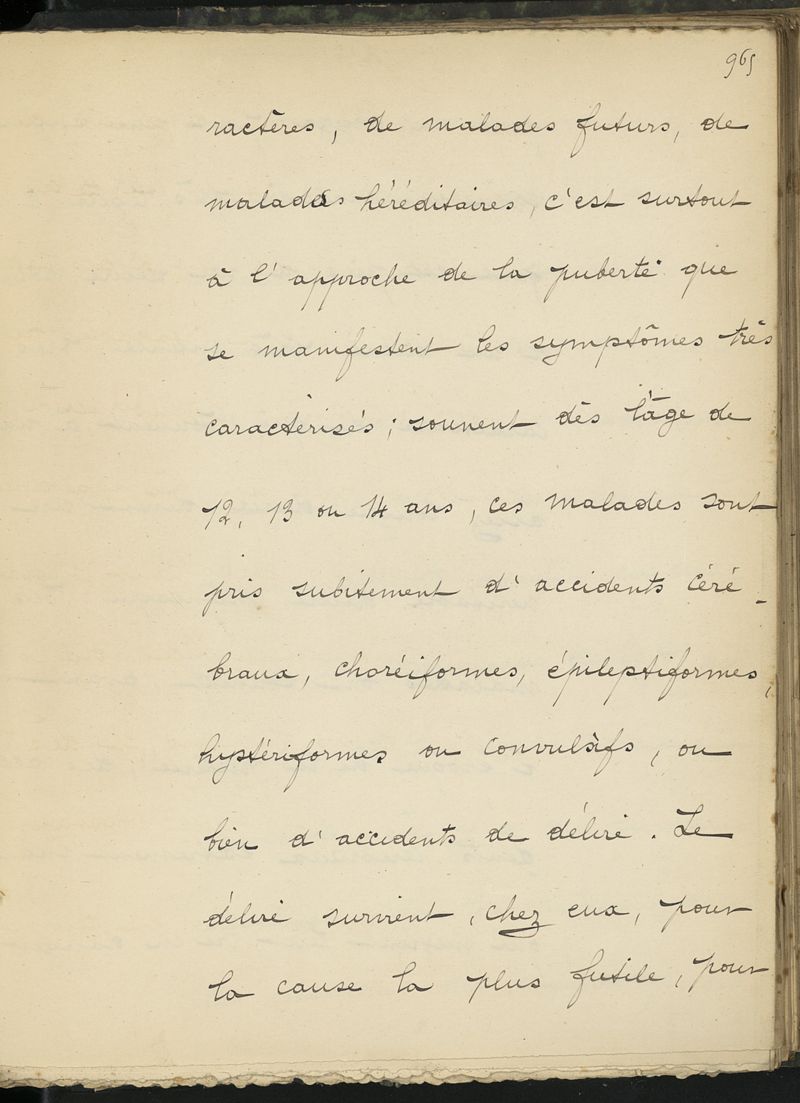 965
ractères, de malades futurs, de
malades héréditaires, c'est surtout
à l'approche de la puberté que
se manifestent les symptômes très
caractérisés; souvent dès l'âge de
12, 13 ou 14 ans, ces malades sont
pris subitement d'accidents céré-
braux, choréiformes, épileptiformes,
hystériformes ou convulsifs, ou
bien d'accidents de délire. Le
délire survient, chez eux, pour
la cause la plus futile, pour